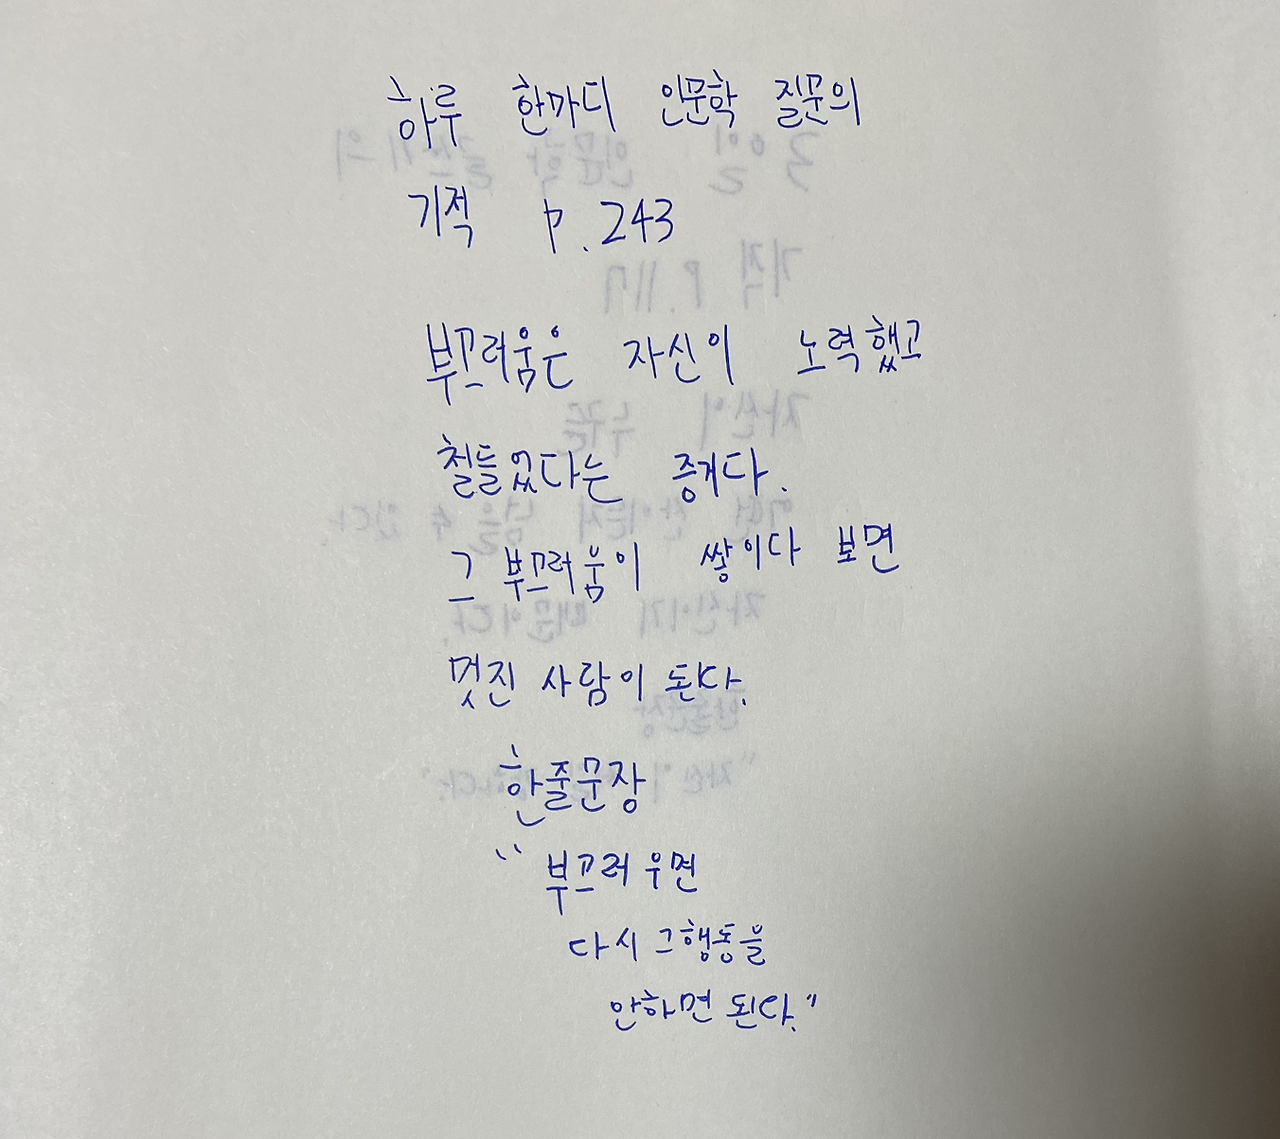 하루 한마디 인문학 질문의
기적 p.243
부끄러움은 자신이 노력했고
철들었다는 증거다.
그 부끄러움이 쌓이다 보면
멋진 사람이 된다.
한줄문장
"부끄러우면
다시 그행동을
안하면 된다."